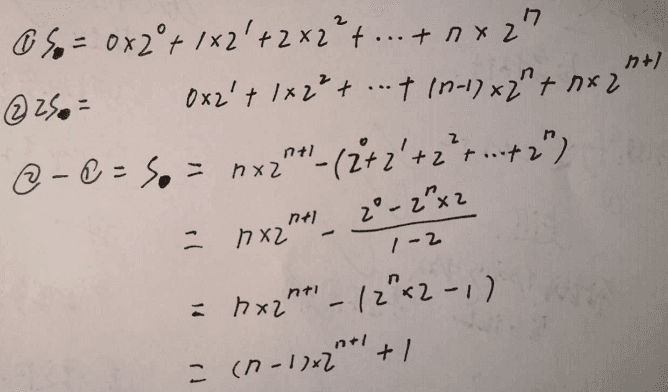 ① S = 0×2⁰ + 1×2¹ + 2×2² + ... + n×2ⁿ
② 2S = 0×2¹ + 1×2² + ... + (n-1)×2ⁿ + n×2ⁿ⁺¹
② - ① = S = n×2ⁿ⁺¹ - (2⁰+2¹+2²+...+2ⁿ)
= n×2ⁿ⁺¹ - (2⁰ - 2ⁿ×2)/(1-2)
= n×2ⁿ⁺¹ - (2ⁿ×2 - 1)
= (n-1)×2ⁿ⁺¹ + 1